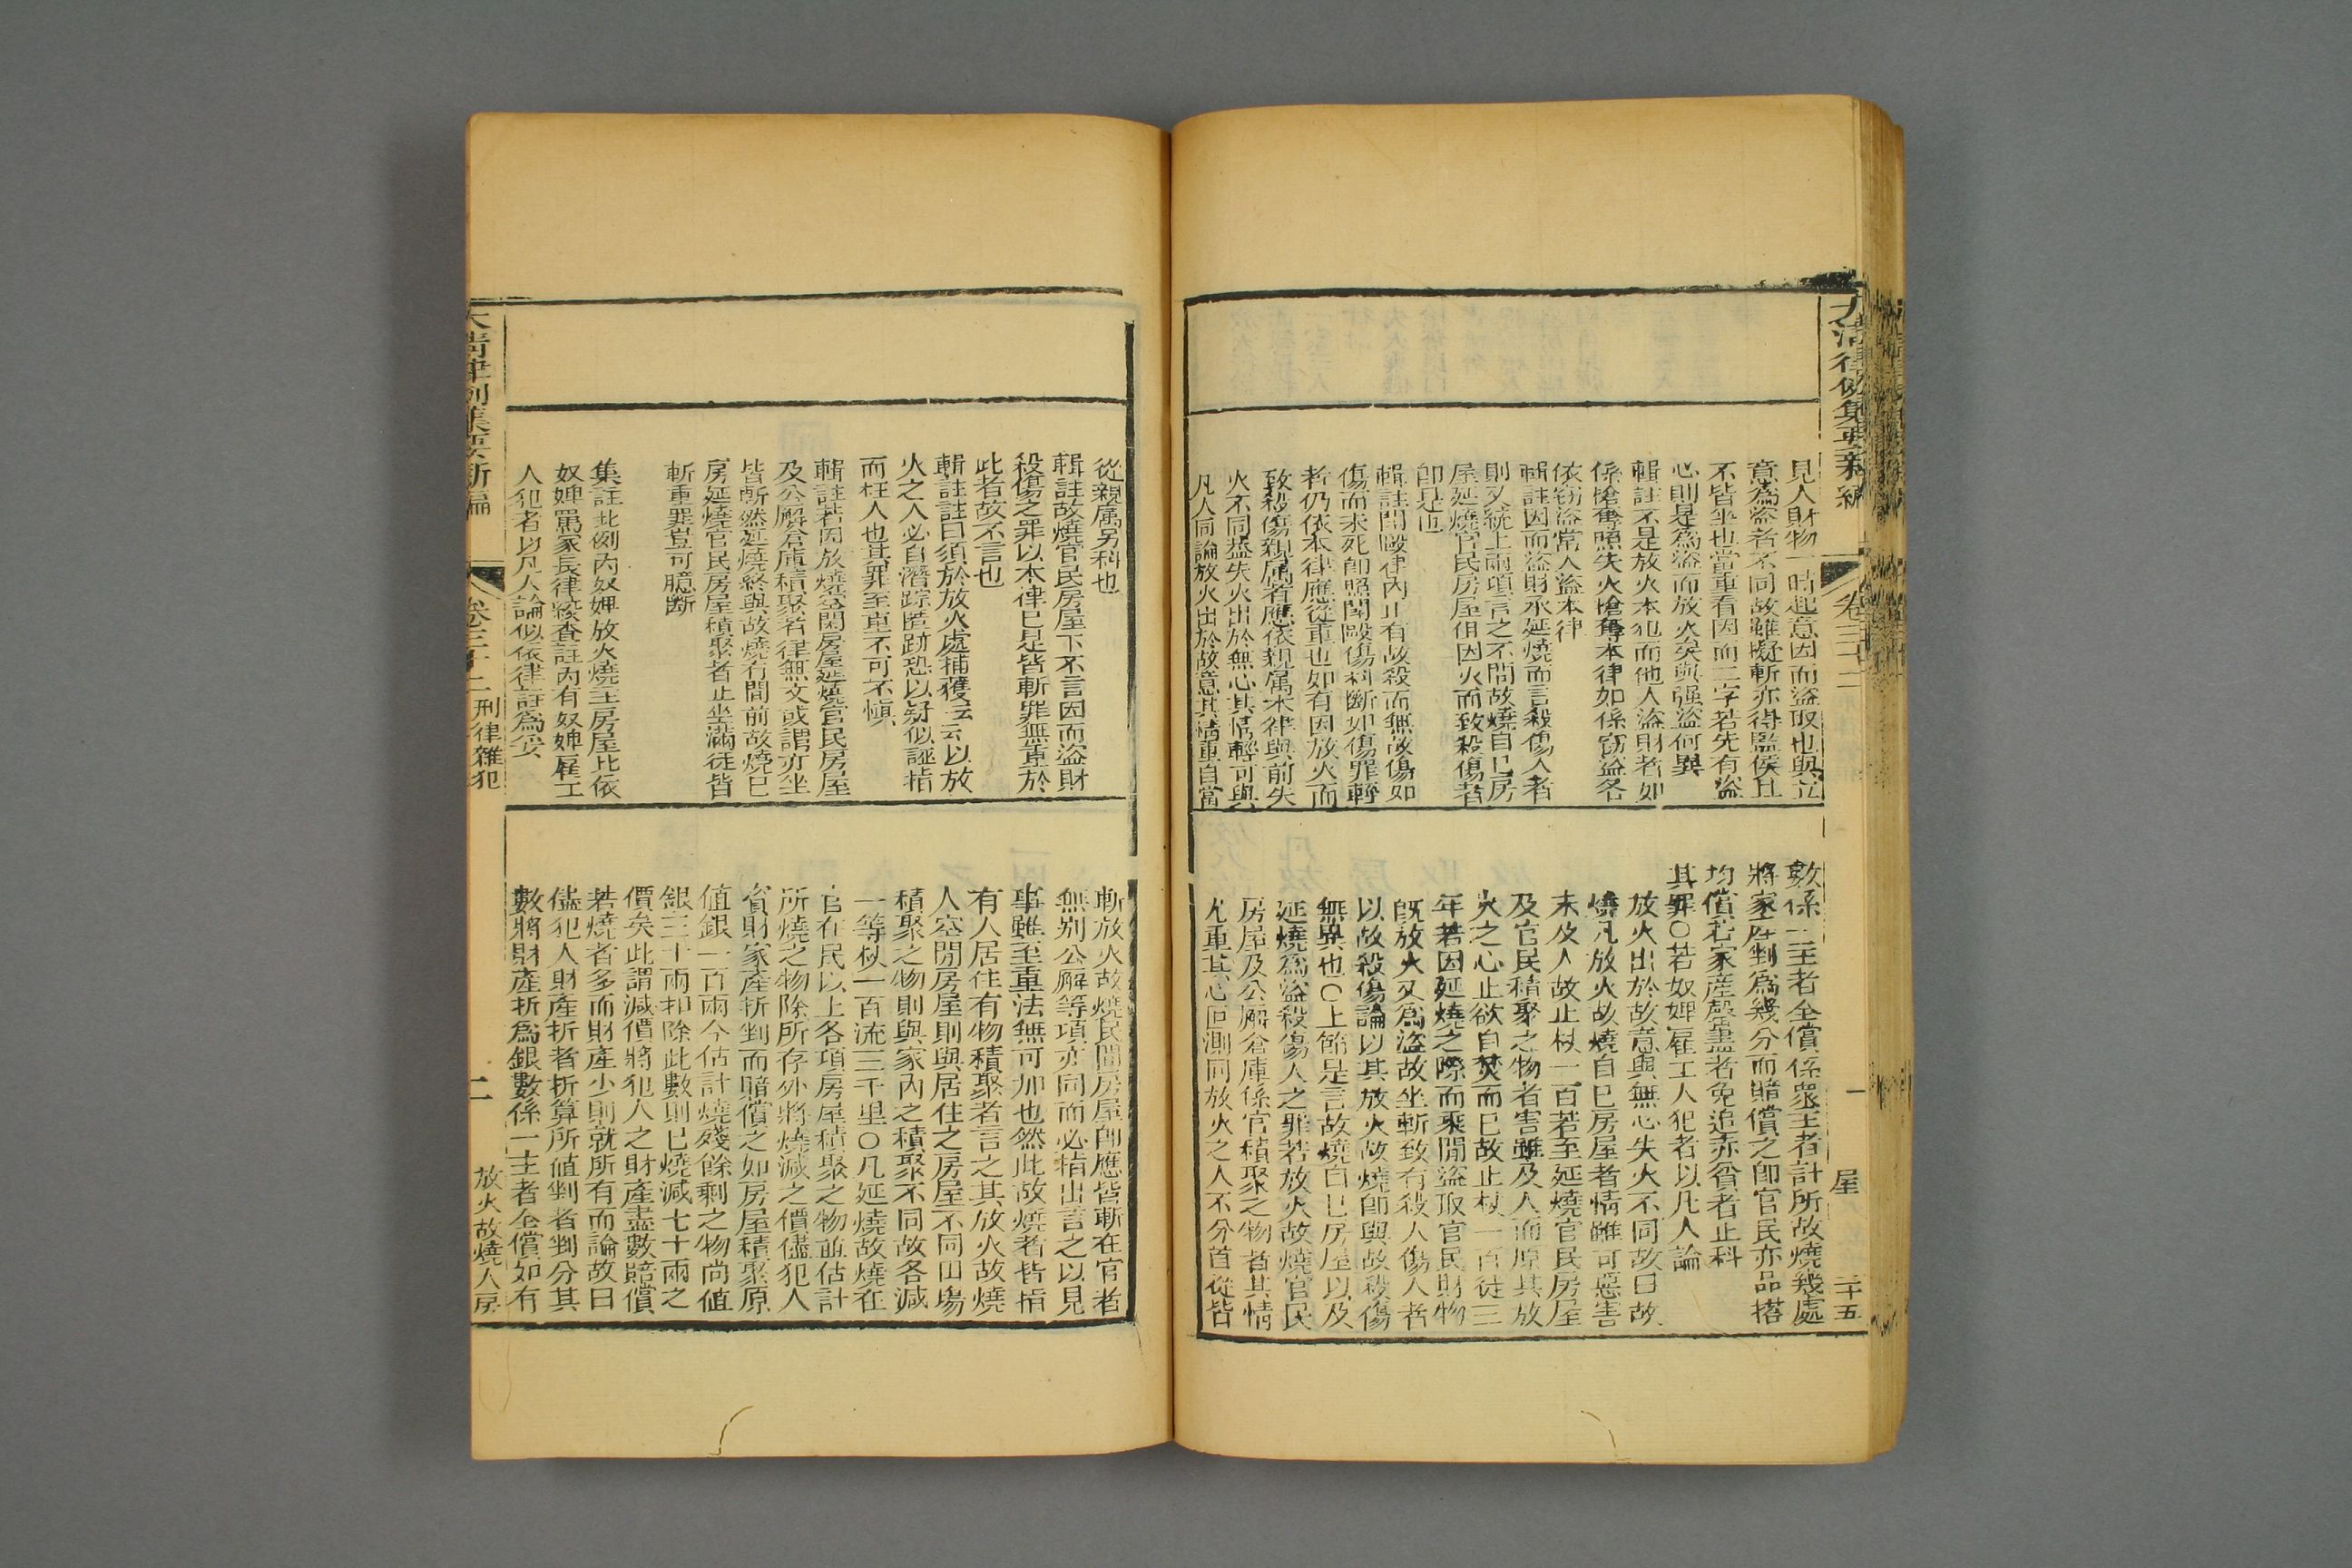 大清律例集要新編
卷三十二
屋
三十五
見人財物一時起意因而盜取也與立
意為盜者不同故雖擬斬亦得監候且
不皆坐也當重看因而二字若先有盜
心則是為盜而放火矣與强盜何異
輯註不是放火本犯而他人盜財者如
係搶奪照失火搶奪本律如係竊盜各
依竊盜常人盜本律
輯註因而盜財承延燒而言殺傷人者
則又統上兩項言之不問故燒自己房
屋延燒官民房屋但因火而致殺傷者
即是也
輯註鬬毆律內止有故殺而無故傷如
傷而未死即照鬬毆傷科斷如傷罪輕
者仍依本律應從重也如有因放火而
致殺傷親屬者應依親屬本律與前失
火不同葢失火出於無心其情輕可與
凡人同論放火出於故意其情重自當
數係一主者全償係眾主者計所故燒幾處
將家產剉為幾分而賠償之即官民亦品搭
均償若家產罄盡者免追赤貧者止科
其罪○若奴婢雇工人犯者以凡人論
放火出於故意與無心失火不同故曰故
燒凡放火故燒自己房屋者情雖可惡害
未及人故止杖一百若至延燒官民房屋
及官民積聚之物者害雖及人而原其放
火之心止欲自焚而已故止杖一百徒三
年若因延燒之際而乘間盜取官民財物
既放火又為盜故坐斬致有殺人傷人者
以故殺傷論以其放火故燒即與故殺傷
無異也○上節是言故燒自己房屋以及
延燒為盜殺傷人之罪若放火故燒官民
房屋及公廨倉庫係官積聚之物者其情
尤重其心叵測同放火之人不分首從皆
從親屬另科也
輯註故燒官民房屋下不言因而盜財
殺傷之罪以本律已是皆斬罪無重於
此者故不言也
輯註註曰須於放火處捕獲云云以放
火之人必自潛踪匿跡恐以疑似誣指
而枉人也其罪至重不可不愼
輯註若因放燒空閑房屋延燒官民房屋
及公廨倉庫積聚者律無文或謂亦坐
皆斬然延燒終與故燒有間前故燒已
房延燒官民房屋積聚者止坐滿徒皆
斬重罪豈可臆斷
集註此例內奴婢放火燒主房屋比依
奴婢罵家長律絞查註內有奴婢雇工
人犯者以凡人論似依律註為妥
斬放火故燒民間房屋即應皆斬在官者
無别公廨等項亦同而必指出言之以見
事雖至重法無可加也然此故燒者皆指
有人居住有物積聚者言之其放火故燒
人空閒房屋則與居住之房屋不同田塲
積聚之物則與家內之積聚不同故各減
一等杖一百流三千里○凡延燒故燒在
官在民以上各項房屋積聚之物並估計
所燒之物除所存外將燒減之價儘犯人
貲財家產折剉而賠償之如房屋積聚原
值銀一百兩今估計燒殘餘剩之物尚值
銀三十兩扣除此數則已燒減七十兩之
價矣此謂減價將犯人之財產盡數賠償
若燒者多而財產少則就所有而論故曰
儘犯人財產折者折算所值剉者剉分其
數將財產折為銀數係一主者全償如有
大清律例集要新編
卷三十二
刑律雜犯
二
放火故燒人房